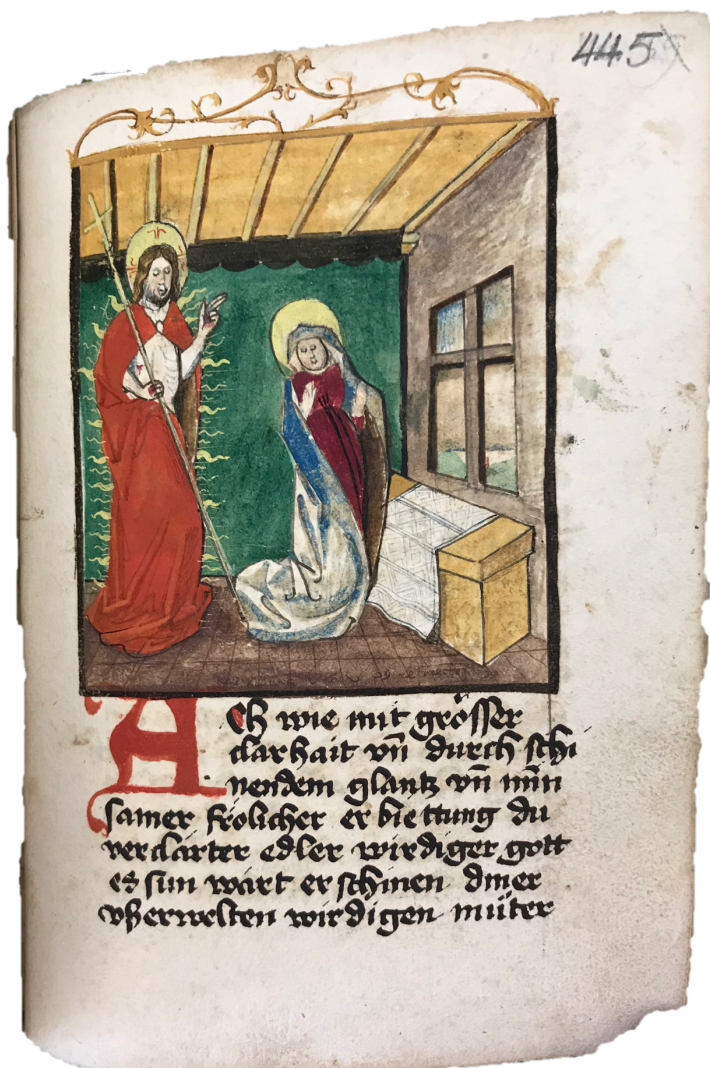 445
Ach wie mit grösser
clarhait vn̄ durch schi
nendem glantz vn̄ min̄
samer frölicher er biettung du
verclärter edler wirdiger gott
es sun wärt erschinen diner
vßerwelten wirdigen müter